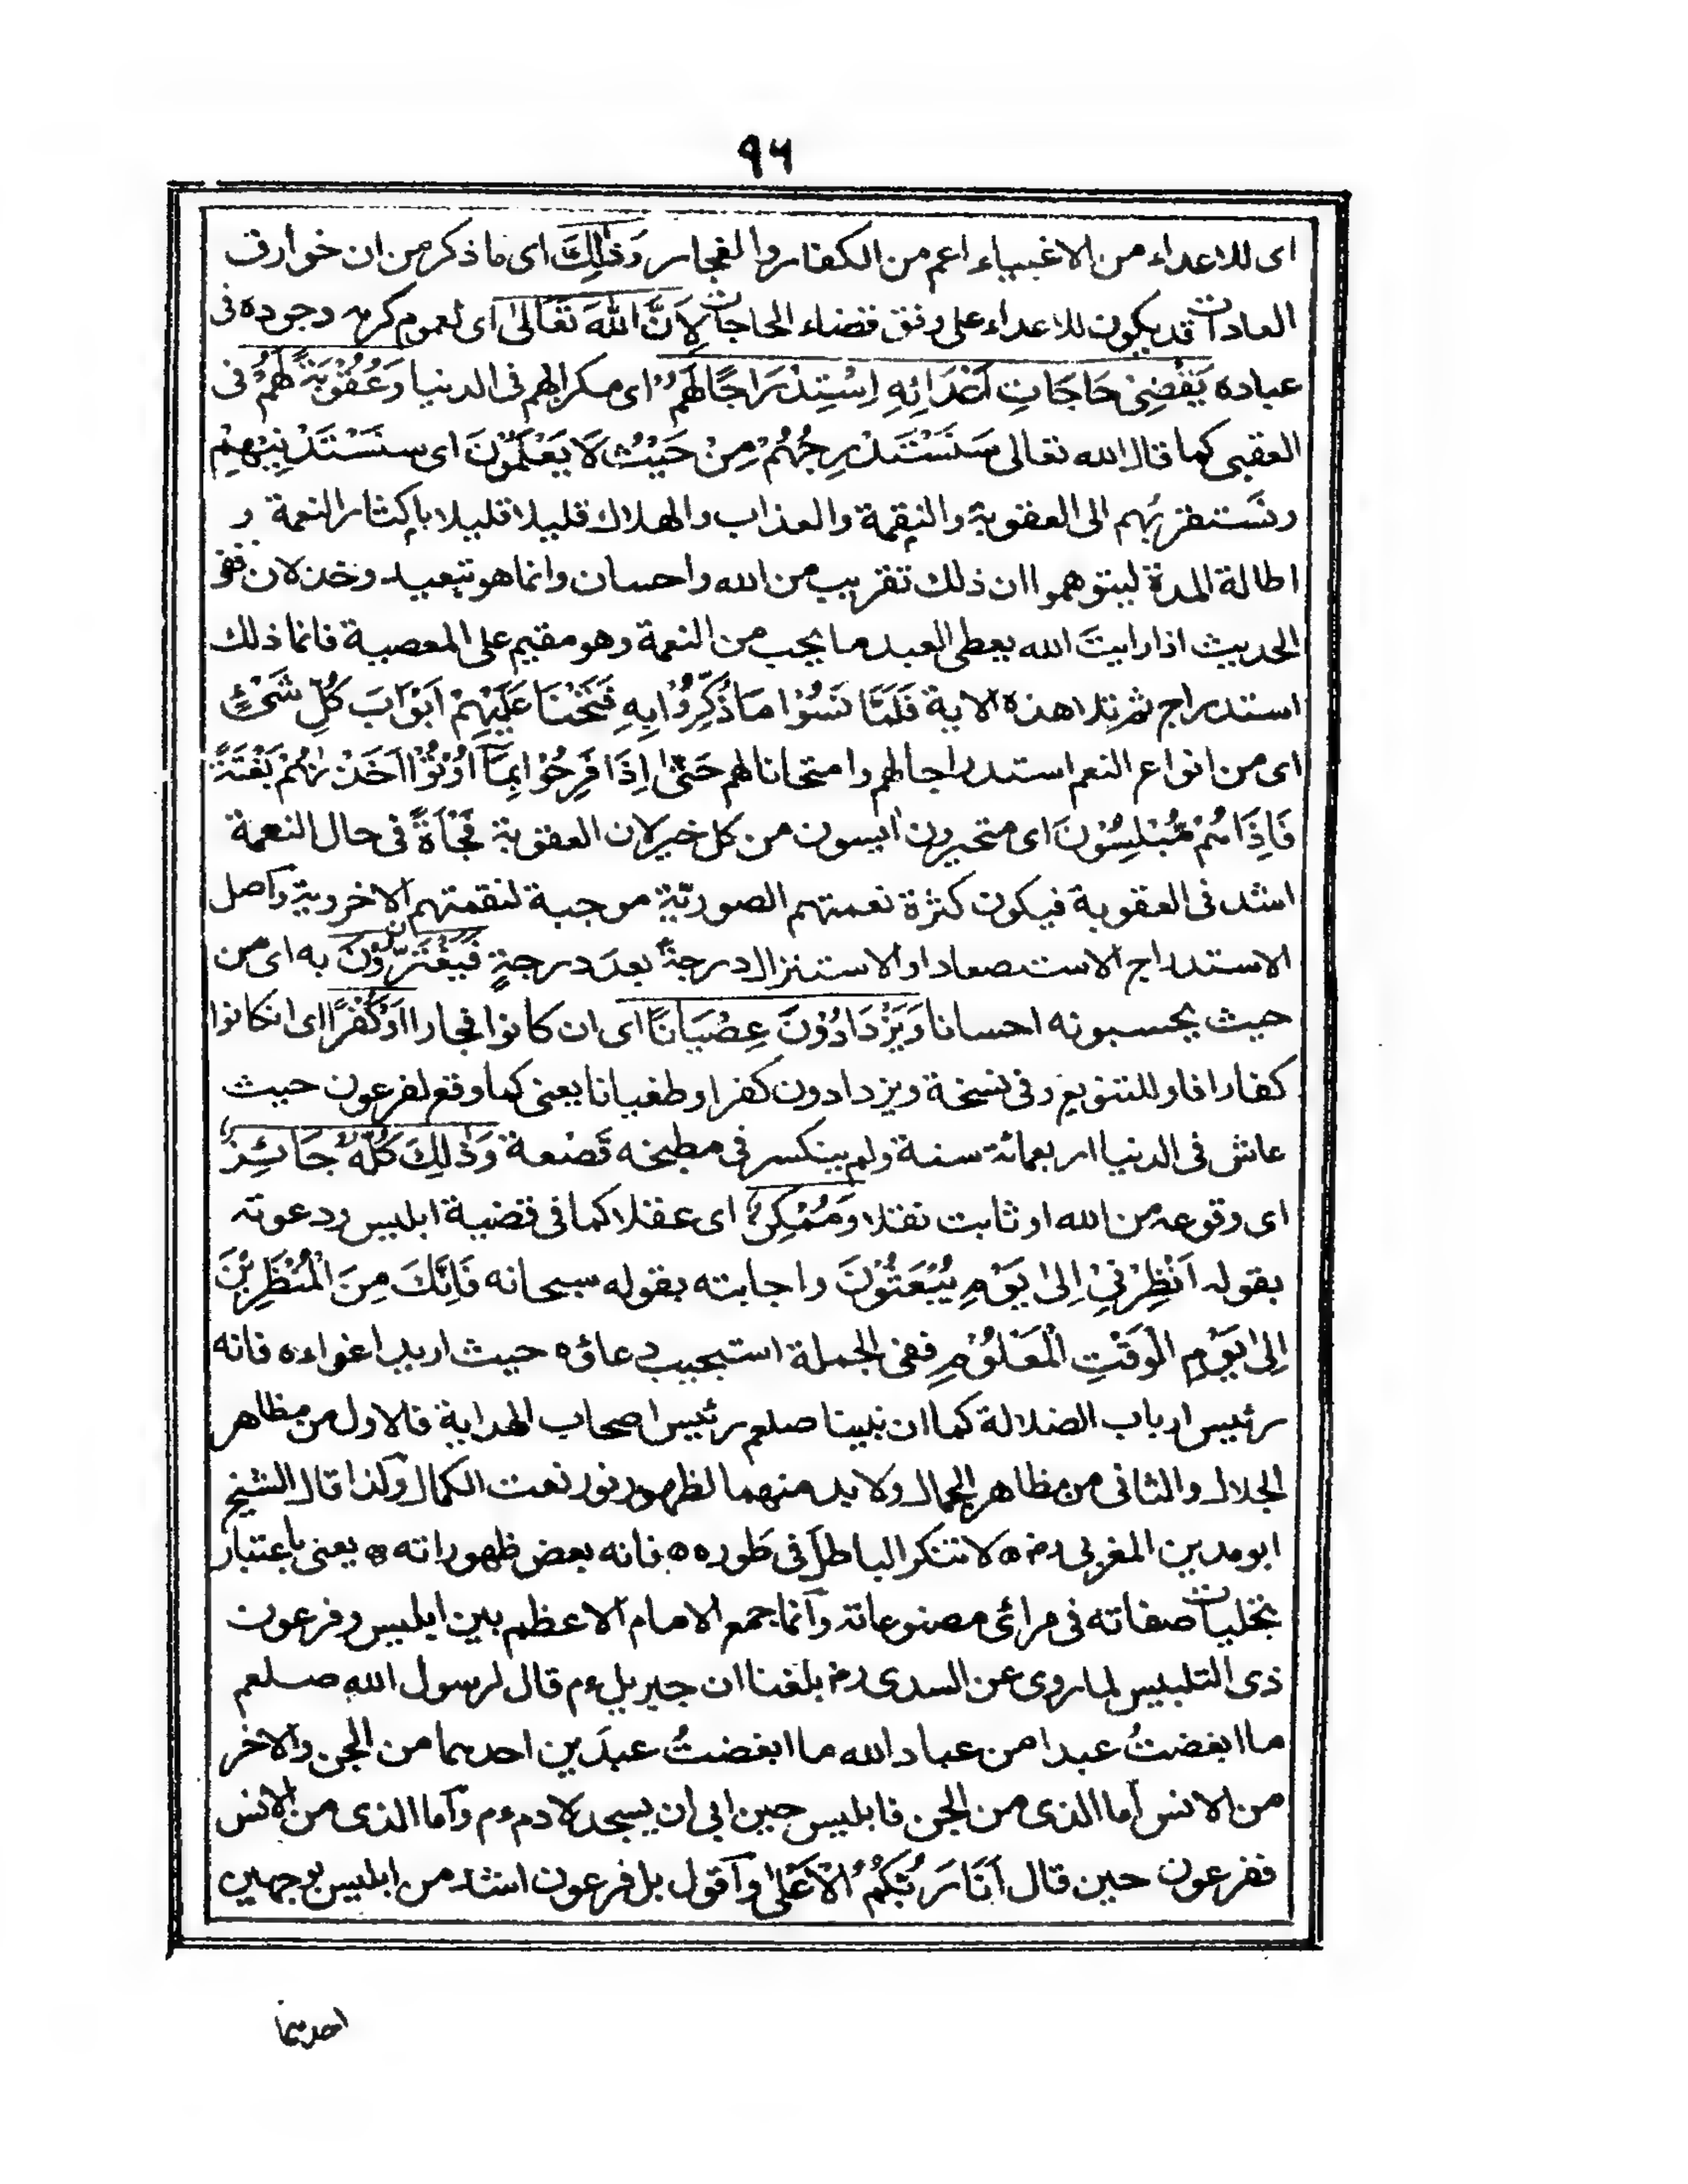 ٩٦
اى للاعداء من الاغبياء اعم من الكفار والفجار وَذٰلِكَ اى ما ذكر من ان خوارق
العادات قد يكون للاعداء على وفق قضاء الحاجات لِاَنَّ اللهَ تَعَالٰى اى لعموم كرمه وجوده فى
عباده يَقْضِىْ حَاجَاتِ اَعْدَائِهِ اِسْتِدْرَاجًا لَهُمْ اى مكرا لهم فى الدنيا وَعُقُوْبَةً لَهُمْ فى
العقبى كما قال الله تعالى سَنَسْتَدْرِجُهُمْ مِنْ حَيْثُ لَا يَعْلَمُوْنَ اى سنَسْتَدْنِيْهِمْ
ونَستقربُهم الى العقوبة والنقمة والعذاب والهلاك قليلا قليلا باكثار النعمة و
اطالة المدة ليتوهموا ان ذلك تقريب من الله واحسان وانما هو تبعيد وخذلان ففى
الحديث اذا رايتَ الله يعطى العبد ما يحب من النعمة وهو مقيم على المعصية فانما ذلك
استدراج ثم تلا هذه الاية فَلَمَّا نَسُوْا مَا ذُكِّرُوْا بِهِ فَتَحْنَا عَلَيْهِمْ اَبْوَابَ كُلِّ شَىْءٍ
اى من انواع النعم استدراجا لهم وامتحانا لهم حَتّٰى اِذَا فَرِحُوْا بِمَآ اُوْتُوْا اَخَذْنٰهُمْ بَغْتَةً
فَاِذَا هُمْ مُّبْلِسُوْنَ اى متحيرون اٰيسون من كل خير لان العقوبة فَجْاَةً فى حال النعمة
اشد فى العقوبة فيكون كثرة نعمتهم الصوريّة موجبة لنقمتهم الاخروية واصل
الاستدراج الاستصعاد او الاستنزال درجةً بعدَ درجةٍ فَيَغْتَرُّوْنَ به اى من
حيث يحسبونه احسانا وَيَزْدَادُوْنَ عِصْيَانًا اى ان كانوا فجارا اَوْ كُفْرًا اى ان كانوا
كفارا فاو للتنويع وفى نسخة ويزدادون كفرا وطغيانا يعنى كما وقع لفرعون حيث
عاش فى الدنيا اربعمائة سنة ولم ينكسر فى مطبخه قَصْعة وَذٰلِكَ كُلُّهُ جَائِزٌ
اى وقوعه من الله او ثابت نقلا وَمُمْكِنٌ اى عقلا كما فى قضية ابليس ودعوته
بقوله اَنْظِرْنِىْ اِلٰى يَوْمِ يُبْعَثُوْنَ واجابته بقوله سبحانه فَاِنَّكَ مِنَ الْمُنْظَرِيْنَ
اِلٰى يَوْمِ الْوَقْتِ الْمَعْلُوْمِ ففى الجملة استجيب دعاؤه حيث اريد اغواءه فانه
رئيس ارباب الضلالة كما ان نبينا صلعم رئيس اصحاب الهداية فالاول من مظاهر
الجلال والثانى من مظاهر الجمال ولابد منهما لظهور نور نعت الكمال ولذا قال الشيخ
ابو مدين المغربى رح لا تنكر الباطل فى طوره فانه بعض ظهوراته يعنى باعتبار
تجليات صفاته فى مرائى مصنوعاته وانما جمع الامام الاعظم بين ابليس وفرعون
ذى التلبيس لما روى عن السدى رح بلغنا ان جبريل ءم قال لرسول الله صلعم
ما ابغضتُ عبدا من عباد الله ما ابغضتُ عبدَين احدهما من الجن والاخر
من الانس اما الذى من الجن فابليس حين ابى ان يسجد لادم ءم واما الذى من الانس
ففرعون حين قال اَنَا رَبُّكُمُ الْاَعْلٰى واقول بل فرعون اشد من ابليس بوجهين
احدهما